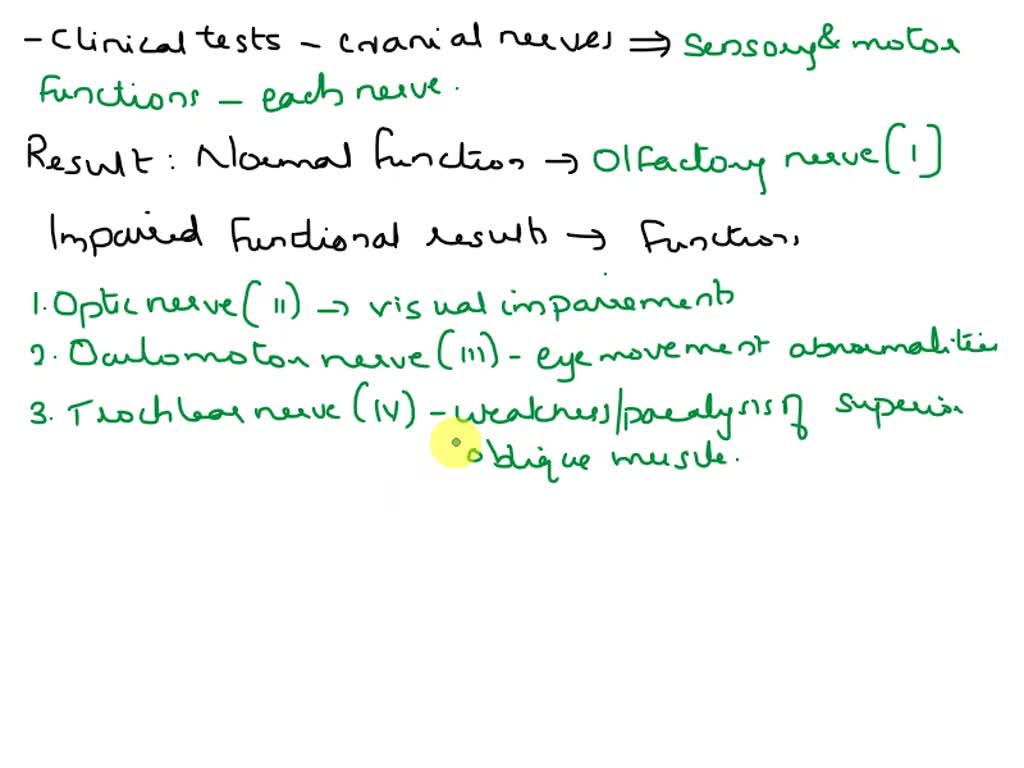 - Clinical tests - cranial nerves ⇒ Sensory & motor
Functions - each nerve.
Result : Normal function → Olfactory nerve (I)
Impaired Functional results → Functions
1. Optic nerve (II) → visual impairements
2. Oculomotor nerve (III) - eye movement abnormalities
3. Trochlear nerve (IV) - weakness/paralysis of superior
oblique muscle.